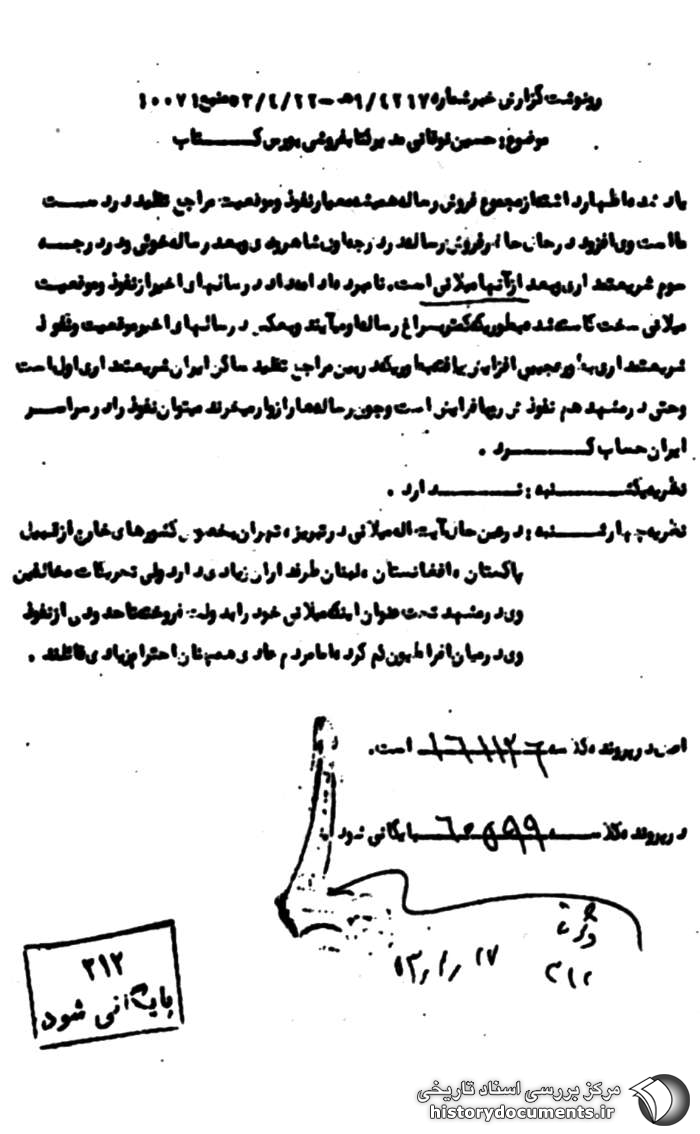 رونوشت گزارش خبر شماره ۹/۴۲۱۷ هـ - ۵۳/۴/۲۲ منبع ۱۰۰۷۱
موضوع: حسین توقانی مدیر کتابفروشی بورس کتاب
یاد شده اظهار داشته از مجموع فروش رساله همیشه معیار نفوذ و موقعیت مراجع تقلید در دست
ما است وی افزود در حال حاضر فروش رساله در درجه اول شاهرودی و بعد رساله خوئی و در درجه
سوم شریعتمداری و بعد از آنها میلانی است. نامبرده ادامه داد در سالهای اخیر از نفوذ و موقعیت
میلانی سخت کاسته شده بطوریکه کمتر بسراغ رساله او میآیند و بعکس در سالهای اخیر موقعیت و نفوذ
شریعتمداری بطور عجیبی افزایش یافته بطوریکه در بین مراجع تقلید ساکن ایران شریعتمداری اول است
و حتی در مشهد هم نفوذش رو بافزایش است و چون رساله ها را زوار میخرند میتوان نفوذ را در سراسر
ایران حساب کرد .
نظریه یکشنبه : ندارد .
نظریه چهارشنبه : در عین حال آیت اله میلانی در تبریز ، تهران بخصوص کشورهای خارج از قبیل
پاکستان ، افغانستان ، لبنان طرفداران زیادی دارد ولی تحریکات مخالفین
وی در مشهد تحت عنوان اینکه میلانی خود را بدولت فروخته تا حدودی از نفوذ
وی در میان افراطیون کم کرده اما مردم عادی همچنان احترام زیادی قائلند .
اصل در پرونده کلاسه ۱۶۱۱۲۶ است.
در پرونده کلاسه ۶۰۵۹۹ بایگانی شود
۳۱۲
۵۳/۴/۲۷
۳۱۲
بایگانی شود
مرکز بررسی اسناد تاریخی
historydocuments.ir